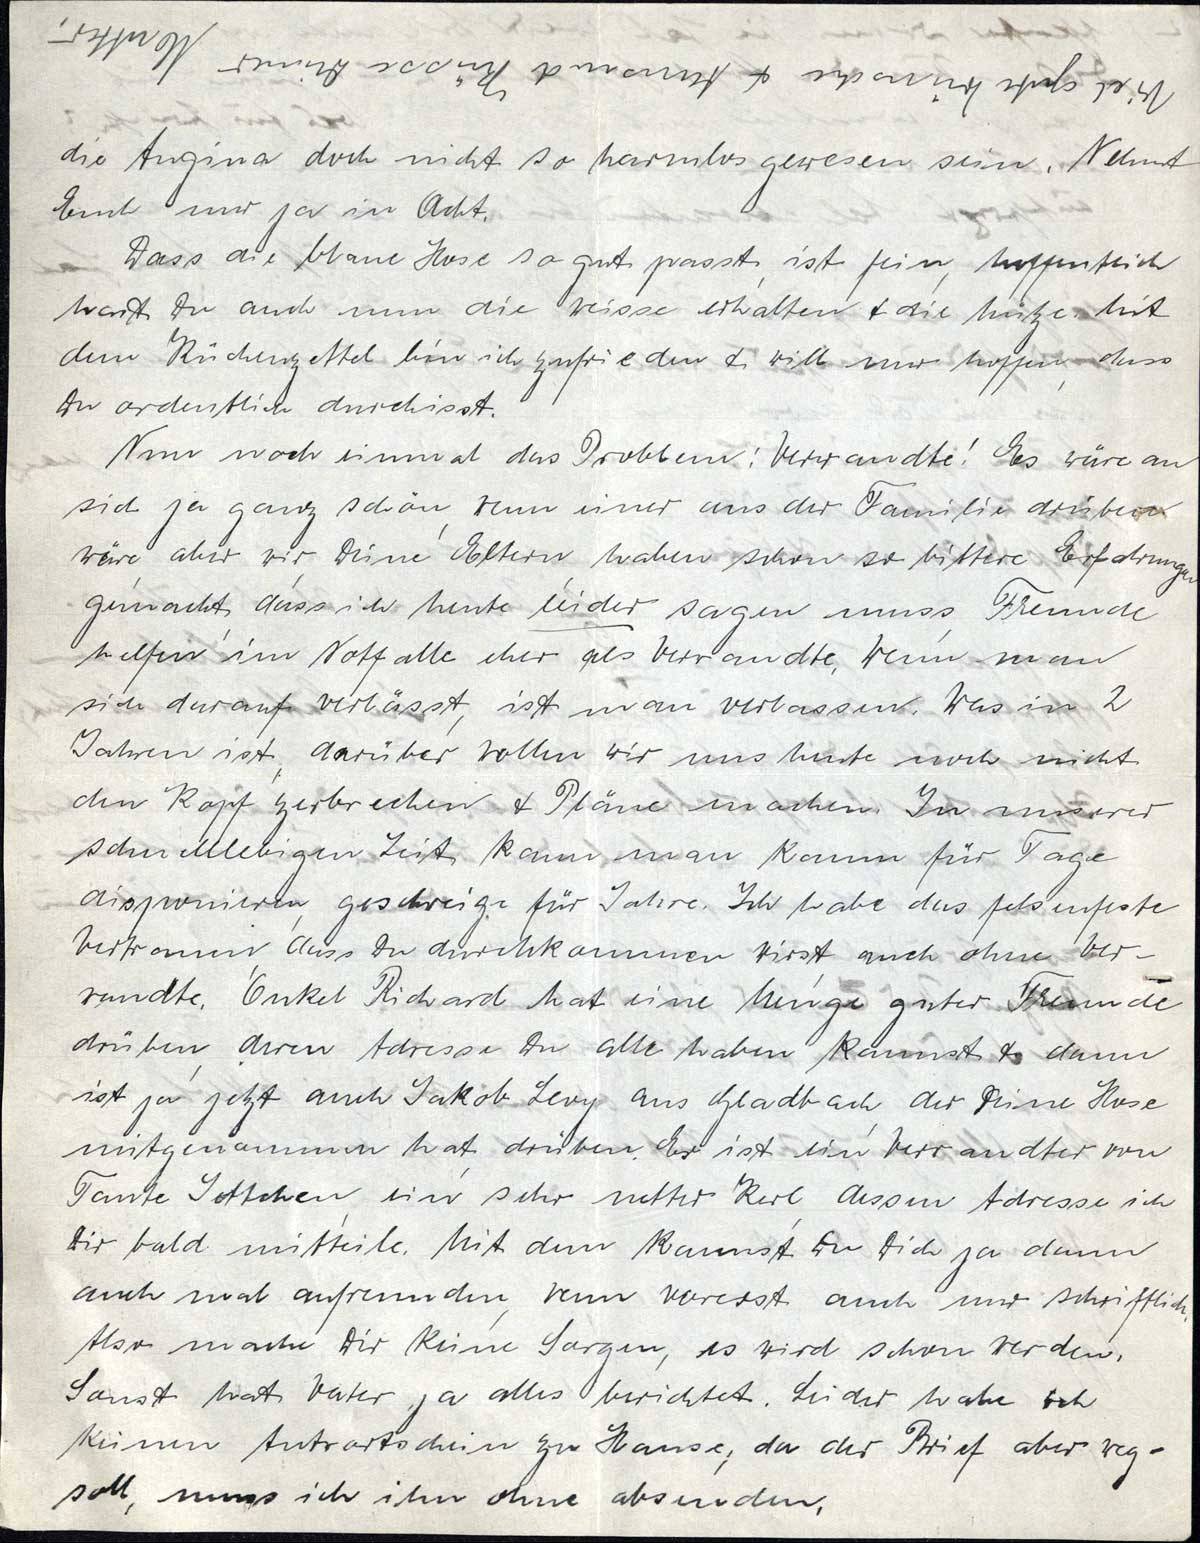 die Angina doch nicht so harmlos gewesen sein. Nehmt
Euch nur ja in Acht.
Dass die blaue Hose so gut passt, ist fein, hoffentlich
hast Du auch nun die weisse erhalten & die Mütze. Mit
dem Küchenzettel bin ich zufrieden & will nur hoffen, dass
Du ordentlich durchisst.
Nun noch einmal das Problem: Verwandte! Es wäre an
sich ja ganz schön, wenn einer aus der Familie drüben
wäre aber wir, Deine Eltern haben schon so bittere Erfahrungen
gemacht, dass ich heute leider sagen muss, Freunde
helfen im Notfalle eher als Verwandte. Wenn man
sich darauf verlässt, ist man verlassen. Was in 2
Jahren ist, darüber wollen wir uns heute noch nicht
den Kopf zerbrechen & Pläne machen. In unserer
schnellebigen Zeit kann man kaum für Tage
disponieren, geschweige für Jahre. Ich habe das felsenfeste
Vertrauen, dass Du durchkommen wirst, auch ohne Ver-
wandte. Onkel Richard hat eine Menge guter Freunde
drüben, deren Adresse Du alle haben kannst & dann
ist ja jetzt auch Jakob Levy aus Gladbach, der Deine Hose
mitgenommen hat, drüben. Er ist ein Verwandter von
Tante Jettchen, ein sehr netter Kerl, dessen Adresse ich
Dir bald mitteile. Mit dem kannst Du Dich ja dann
auch mal anfreunden, wenn vorerst auch nur schriftlich.
Also mache Dir keine Sorgen, es wird schon werden.
Sonst hat Vater ja alles berichtet. Leider habe ich
keinen Antwortschein zu Hause, da der Brief aber weg-
soll, muss ich ihn ohne absenden.
Viel gute Wünsche & tausend Küsse Deiner Mutter.